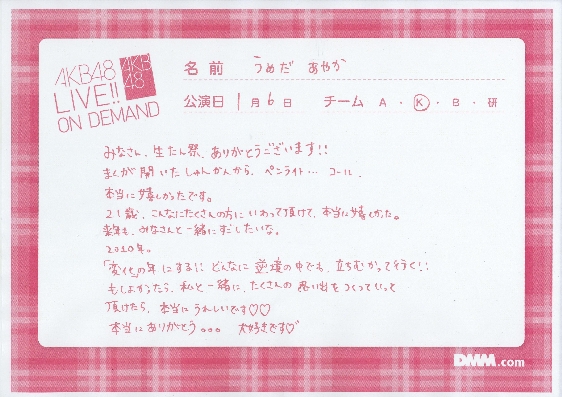 AKB48
LIVE!!
ON DEMAND
AKB
48
名前 うめだ あやか
公演日 1月6日 チーム A・K・B・研
みなさん、生たん祭、ありがとうございます!!
まくが開いたしゅんかんから、ペンライト… コール…
本当に嬉しかったです。
21歳、こんなにたくさんの方にいわって頂けて、本当に嬉しかった。
来年も、みなさんと一緒にすごしたいな。
2010年。
「変化」の年にする!! どんなに逆境の中でも、立ちむかって行く!!
もしよかったら、私と一緒に、たくさんの思い出をつくっていって
頂けたら、本当にうれしいです♡♡
本当にありがとう。。。 大好きです♡
DMM.com